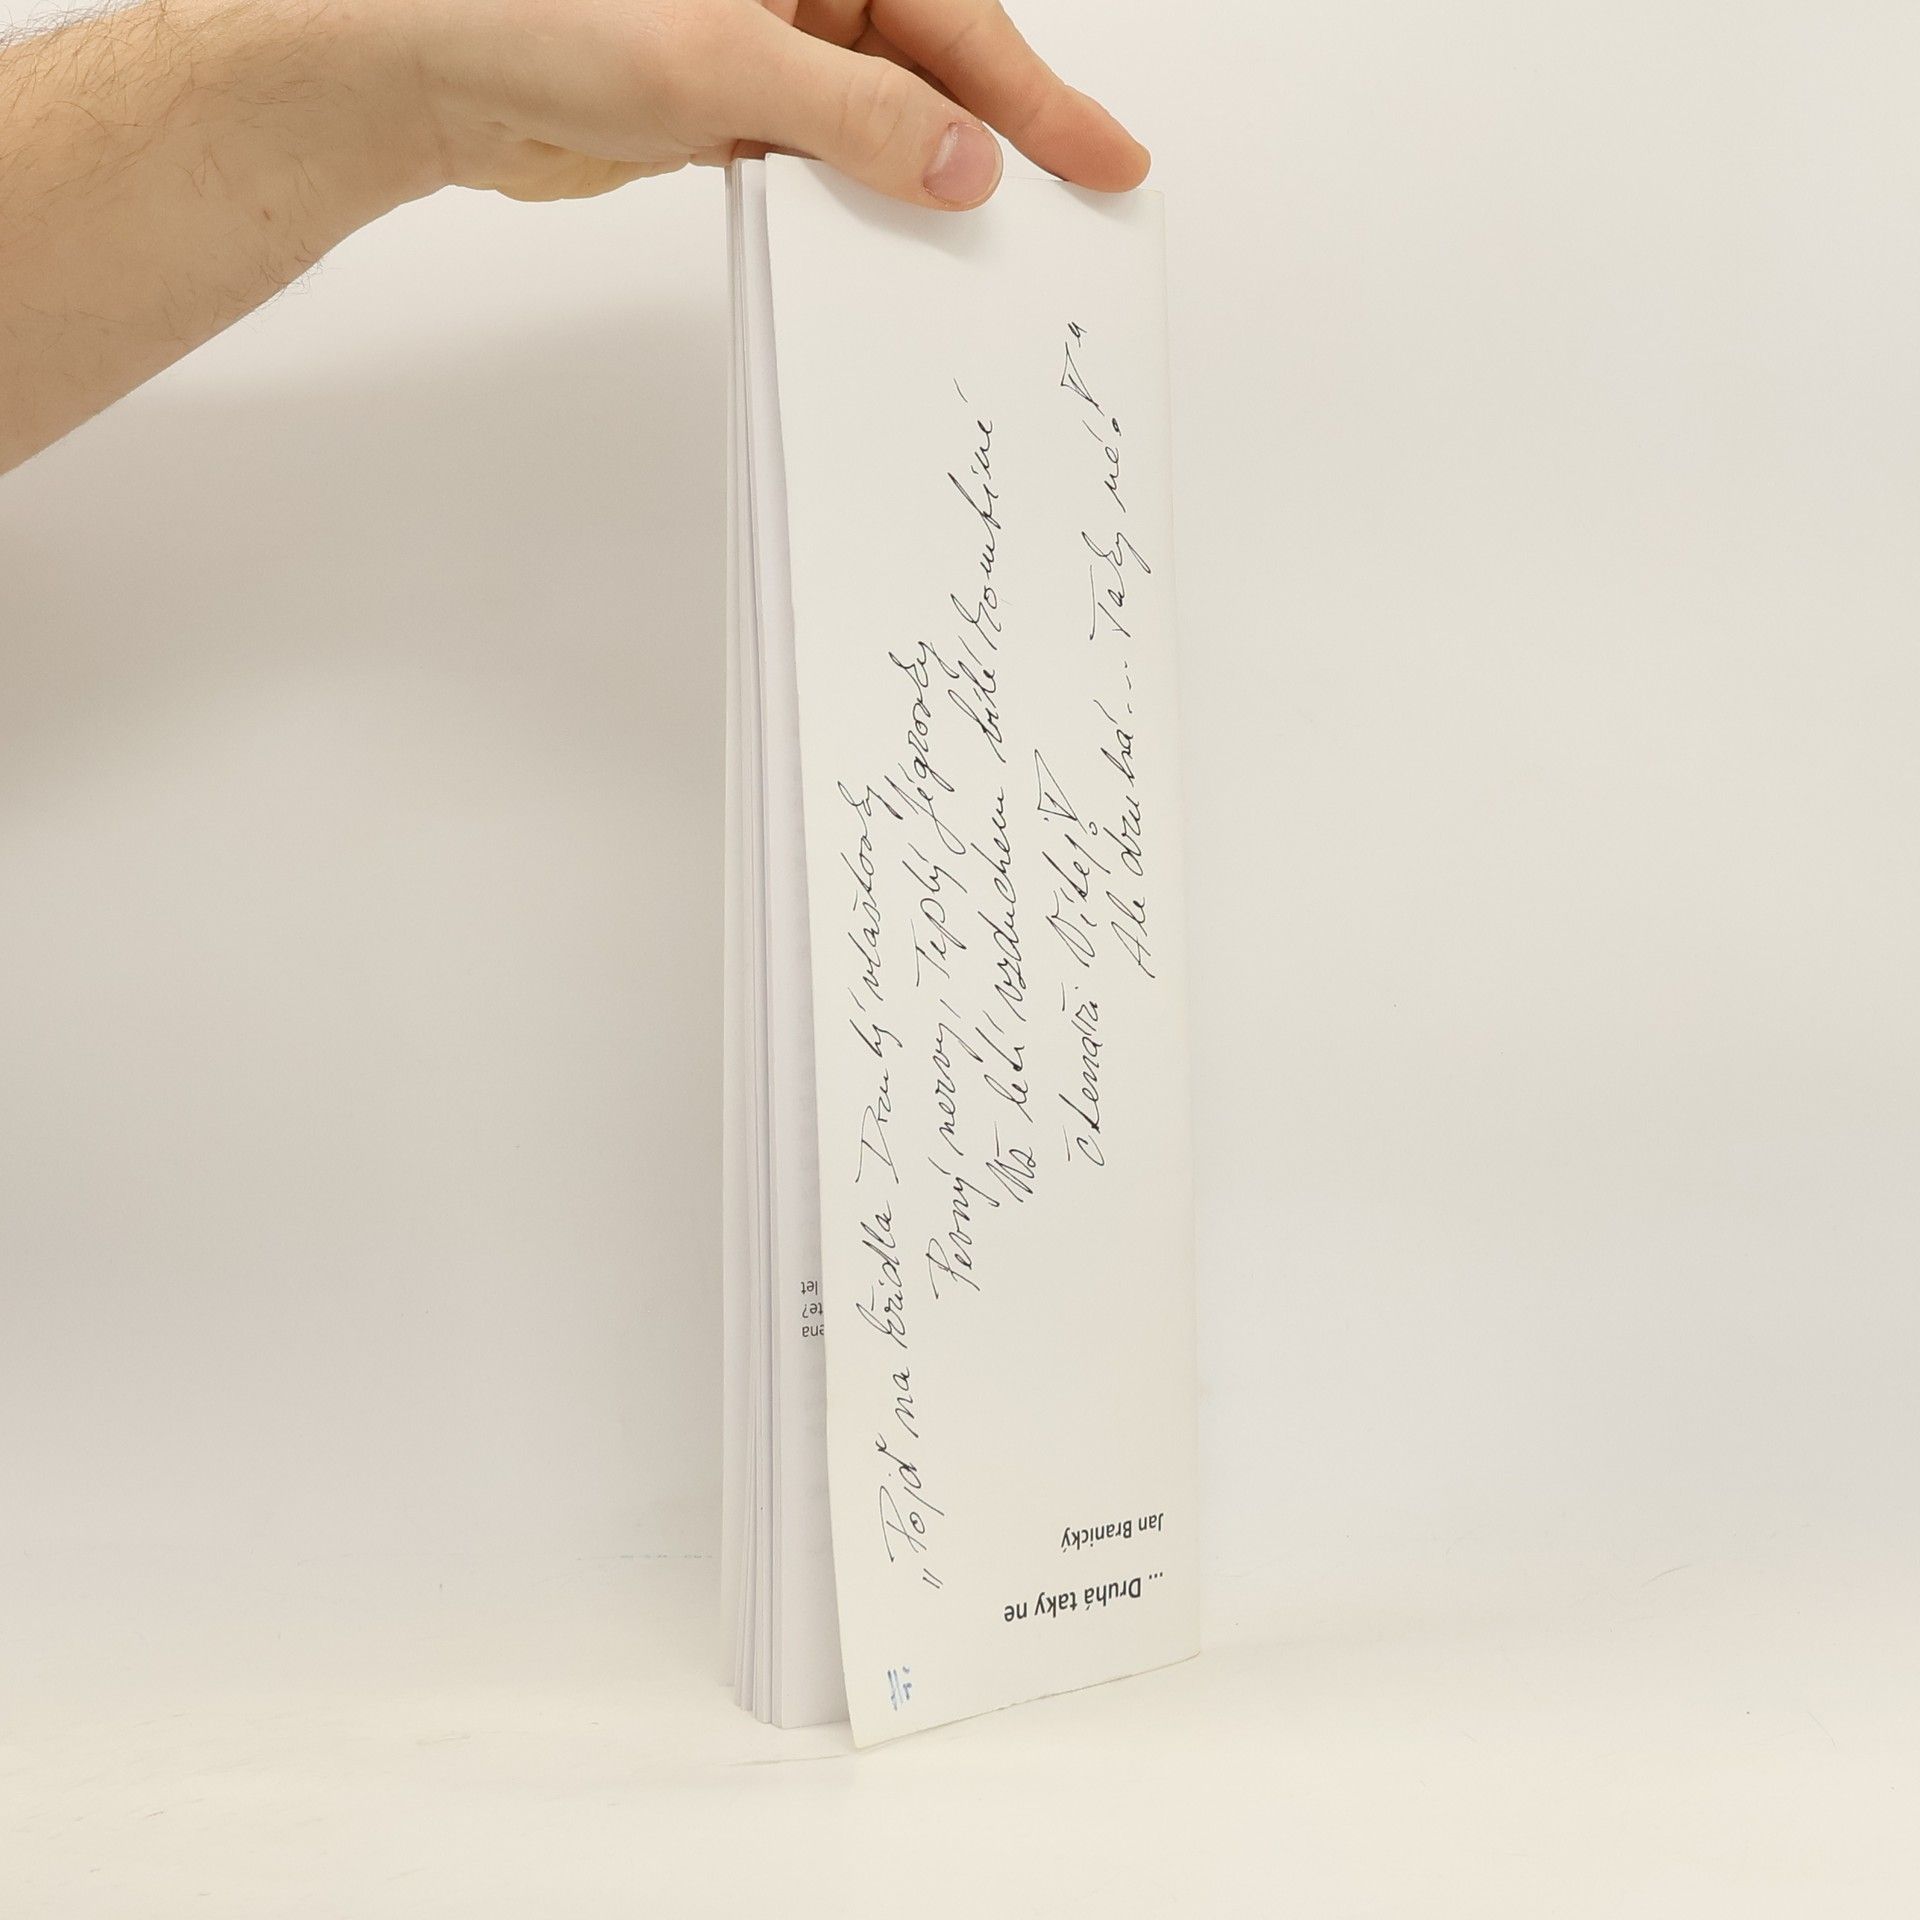 ... Druhá taky ne
Jan Branický
"Pojď na křídla Druhý vlaštovky
Pevný nervy, Teplý Jégrovky
Už letí vzduchem bílé kombiné
čtenáři Vítej!
Ale druhá... Taky né!"
ena
te?
let